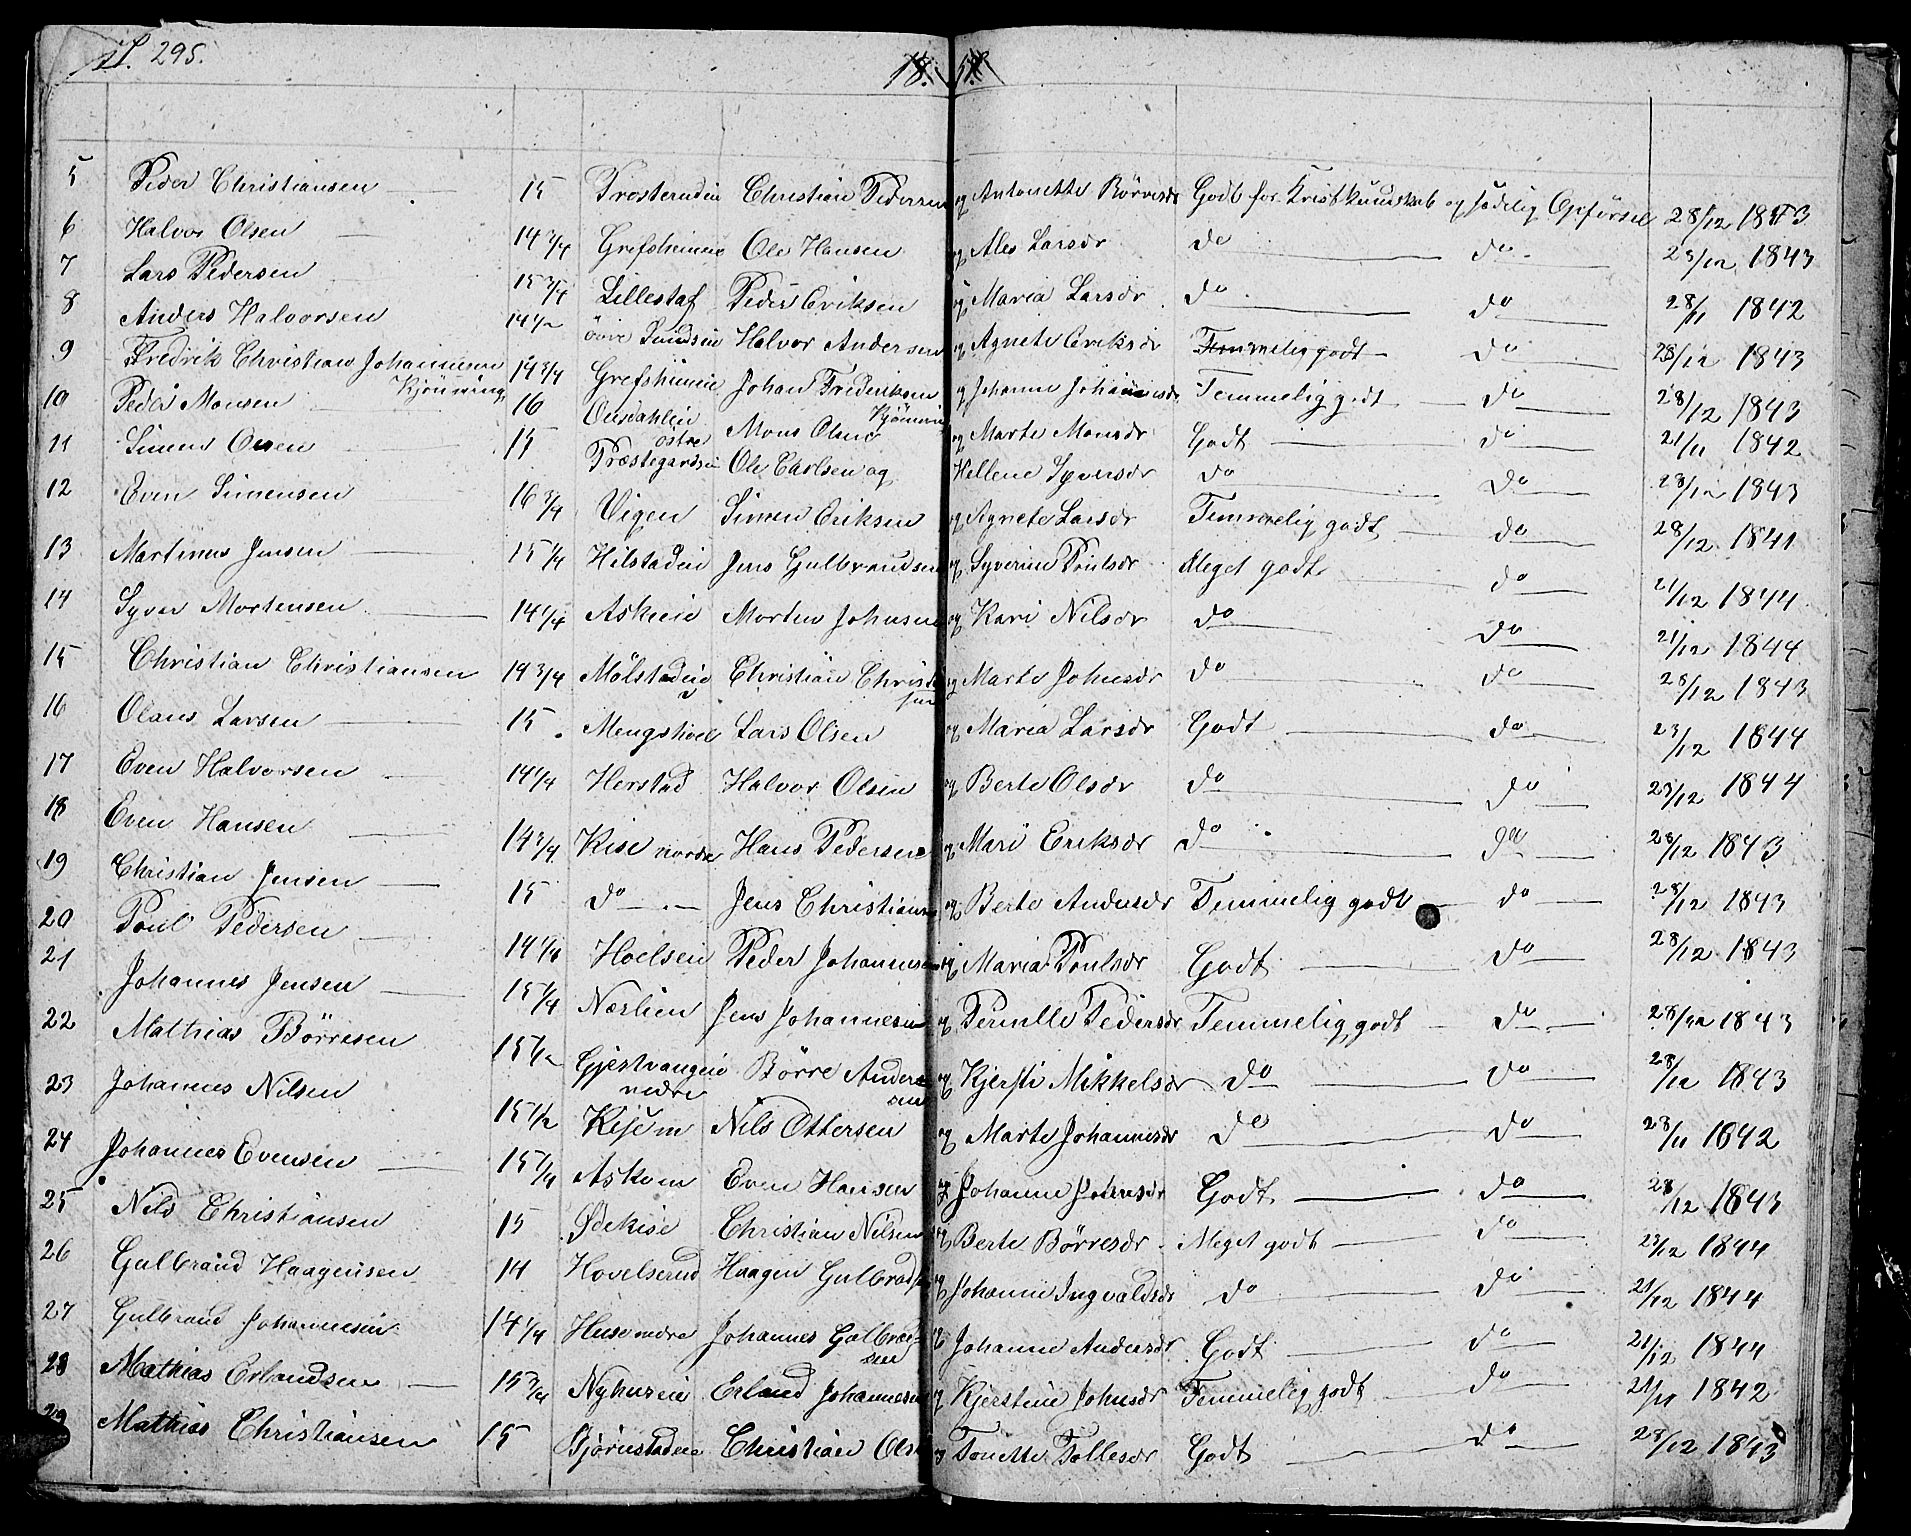 295.
5 Peder Christiansen 15 Christian Pedersen og Antonette Börresdr Godt for Kristkundskab og sædelig Opförsel 28/12 1843
6 Halvor Olsen 14 3/4 Grefsheimeie Ole Hansen og Ales Larsdr do do 23/12 1843
7 Lars Pedersen 15 3/4 Lillestaf Peder Eriksen og Maria Larsdr do do 28/11 1842
8 Anders Halvorsen 14 1/2 Halvor Andersen og Agnete Eriksdr Temmelig godt do 28/12 1843
9 Fredrik Christian Johannesen Kjönning 14 3/4 Grefsheimeie Johan Frederiksen Kjönning og Johanne Johannesdr Temmelig godt do 28/12 1843
10 Peder Monsen 16 Mons Olsen og Marte Monsdr Godt do 21/11 1842
11 Simen Olsen 15 Præstegardseie Ole Carlsen og Hellene Syversdr do do 28/12 1843
12 Even Simensen 16 3/4 Vigen Simen Eriksen og Agnete Larsdr Temmelig godt do 28/12 1841
13 Martinus Jensen 15 1/4 Hilstadeie Jens Gulbrandsen og Syverine Poulsdr Meget godt do 21/12 1844
14 Syver Mortensen 14 1/4 Askeeie Morten Johnsen og Kari Nilsdr do do 21/12 1844
15 Christian Christiansen 14 3/4 Mölstadeie Christian Christiansen og Marte Johnsdr do do 28/12 1843
16 Olaus Larsen 15 Mengshoel Lars Olsen og Maria Larsdr Godt do 23/12 1844
17 Even Halvorsen 14 1/4 Herstad Halvor Olsen og Berte Olsdr do do 23/12 1844
18 Even Hansen 14 3/4 Kise nordre Hans Pedersen og Mari Eriksdr do do 28/12 1843
19 Christian Jensen 15 do Jens Christiansen og Berte Andersdr Temmelig godt do 28/12 1843
20 Poul Pedersen 14 1/4 Hoelseie Peder Johannesen og Maria Poulsdr Godt do 28/12 1843
21 Johannes Jensen 15 1/4 Næslien Jens Johannesen og Pernille Pedersdr Temmelig godt do 28/12 1843
22 Mathias Börresen 15 1/2 Gjestvangeie nedre Börre Andersen og Kjersti Mikkelsdr do do 28/12 1843
23 Johannes Nilsen 15 1/2 Kise m Nils Ottersen og Marte Johannesdr do do 28/11 1842
24 Johannes Evensen 15 1/4 Askom Even Hansen og Johanne Johnsdr Godt do 28/12 1843
25 Nils Christiansen 15 Ödekise Christian Nilsen og Berte Börresdr Meget godt do 23/12 1844
26 Gulbrand Haagensen 14 Hovelserud Haagen Gulbrandsen og Johanne Ingvaldsdr do do 21/12 1844
27 Gulbrand Johannesen 14 1/4 Huse nedre Johannes Gulbrandsen og Johanne Andersdr Godt do 21/12 1844
28 Mathias Erlandsen 15 3/4 Nyhuseie Erland Johannesen og Kjerstine Johnsdr Temmelig godt do 21/11 1842
29 Mathias Christiansen 15 Bjørnstadeie Christian Olsen og Tonette Tollesdr Godt do 28/12 1843